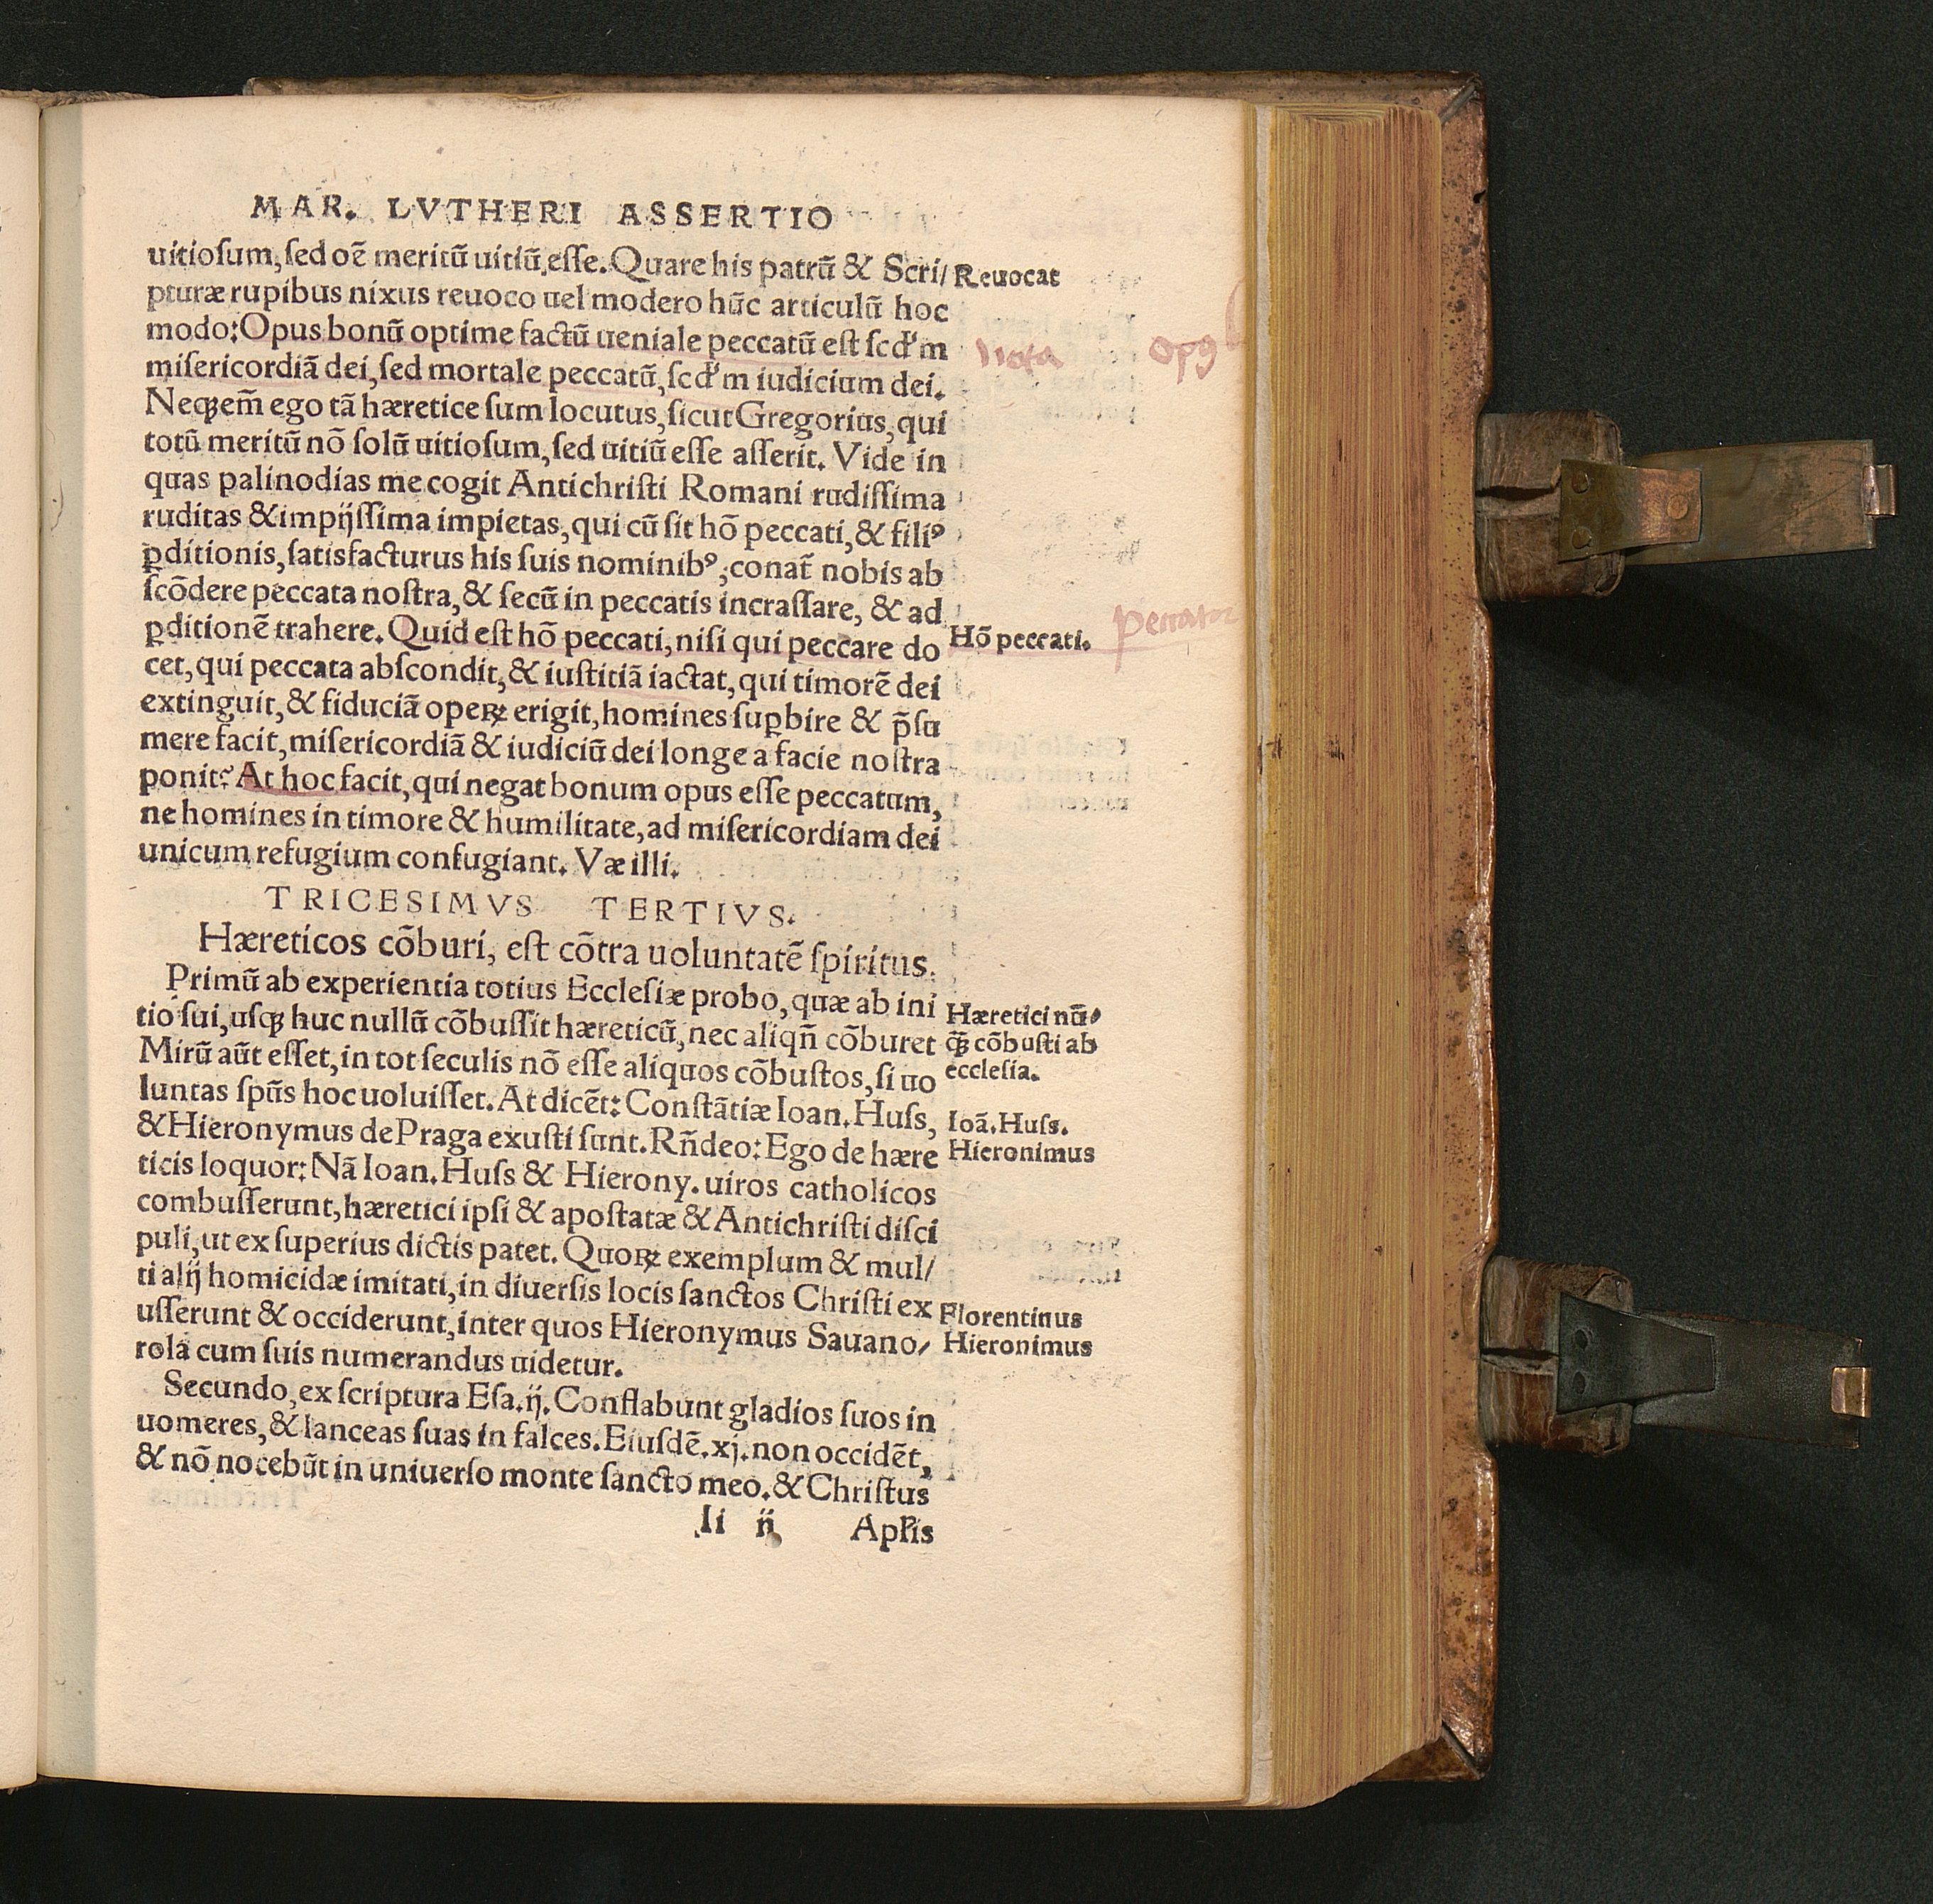 MAR. LVTHERI ASSERTIO
uitioſum, ſed oẽ meritũ uitiũ, eſſe. Quare his patrũ & Scri/
Reuocat
pturæ rupibus nixus reuoco uel modero hũc articulũ hoc
modo: Opus bonũ optime factũ ueniale peccatũ eſt ſcd'm
nota
opꝰ
miſericordiã dei, ſed mortale peccatũ, ſcd'm iudicium dei.
Neqꝫ em̃ ego tã hæretice ſum locutus, ſicut Gregorius, qui
totũ meritũ nõ ſolũ uitioſum, ſed uitiũ eſſe aſſerit. Vide in
quas palinodias me cogit Antichriſti Romani rudiſſima
ruditas & impijſſima impietas, qui cũ ſit hõ peccati, & filiꝰ
ꝑditionis, ſatisfacturus his ſuis nominibꝰ, conat̃ nobis ab
ſcõdere peccata noſtra, & ſecũ in peccatis incraſſare, & ad
ꝑditionẽ trahere. Quid eſt hõ peccati, niſi qui peccare do
Hõ peccati.
peccator
cet, qui peccata abſcondit, & iuſtitiã iactat, qui timorẽ dei
extinguit, & fiduciã operꝝ erigit, homines ſuꝑbire & p̃ſu
mere facit, miſericordiã & iudiciũ dei longe a facie noſtra
ponit? At hoc facit, qui negat bonum opus eſſe peccatum,
ne homines in timore & humilitate, ad miſericordiam dei
unicum refugium confugiant. Væ illi.
TRICESIMVS TERTIVS.
Hæreticos cõburi, eſt cõtra uoluntatẽ ſpiritus.
Primũ ab experientia totius Eccleſiæ probo, quæ ab ini
tio ſui, uſqꝫ huc nullũ cõbuſſit hæreticũ, nec aliqñ cõburet
Hæretici nũ/
q̃ꝫ cõbuſti ab
eccleſia.
Mirũ aũt eſſet, in tot ſeculis nõ eſſe aliquos cõbuſtos, ſi uo
luntas ſpũs hoc uoluiſſet. At dicẽt: Conſtãtiæ Ioan. Huſs,
Ioã. Huſs.
& Hieronymus de Praga exuſti ſunt. Rñdeo: Ego de hære
Hieronimus
ticis loquor: Nã Ioan. Huſs & Hierony. uiros catholicos
combuſſerunt, hæretici ipſi & apoſtatæ & Antichriſti diſci
puli, ut ex ſuperius dictis patet. Quorꝝ exemplum & mul/
ti alij homicidæ imitati, in diuerſis locis ſanctos Chriſti ex
Florentinus
uſſerunt & occiderunt, inter quos Hieronymus Sauano/
Hieronimus
rola cum ſuis numerandus uidetur.
Secundo, ex ſcriptura Eſa. ij. Conflabunt gladios ſuos in
uomeres, & lanceas ſuas in falces. Eiuſdẽ. xj. non occidẽt,
& nõ nocebũt in uniuerſo monte ſancto meo. & Chriſtus
Ii ij
Apl̃is